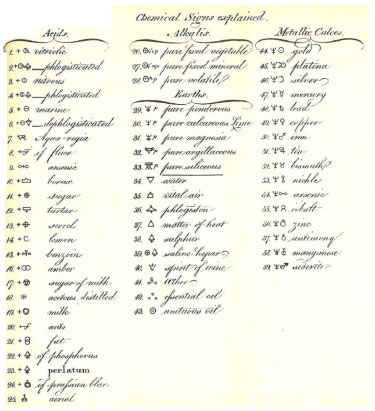 Chemical Signs explained.
Acids.
1. vitriolic
2. phlogisticated
3. nitrous
4. phlogisticated
5. marine
6. dephlogisticated
7. Aqua regia
8. of fluor
9. arsenic
10. borax
11. sugar
12. tartar
13. sorrel
14. lemon
15. benzoin
16. amber
17. sugar of milk
18. acetous distilled
19. milk
20. ants
21. fat
22. of phosphorus
23. perlatum
24. of prussian blue
25. aerial
Alkalis.
26. pure fixed vegetable
27. pure fixed mineral
28. pure volatile
Earths.
29. pure ponderous
30. pure calcareous Lime
31. pure magnesia
32. pure argillaceous
33. pure siliceous
34. water
35. vital air
36. phlogiston
37. matter of heat
38. sulphur
39. saline hepar
40. spirit of wine
41. æther
42. essential oil
43. unctuous oil
Metallic Calces.
44. gold
45. platina
46. silver
47. mercury
48. lead
49. copper
50. iron
51. tin
52. bismuth
53. nickle
54. arsenic
55. cobalt
56. zinc
57. antimony
58. manganese
59. siderite